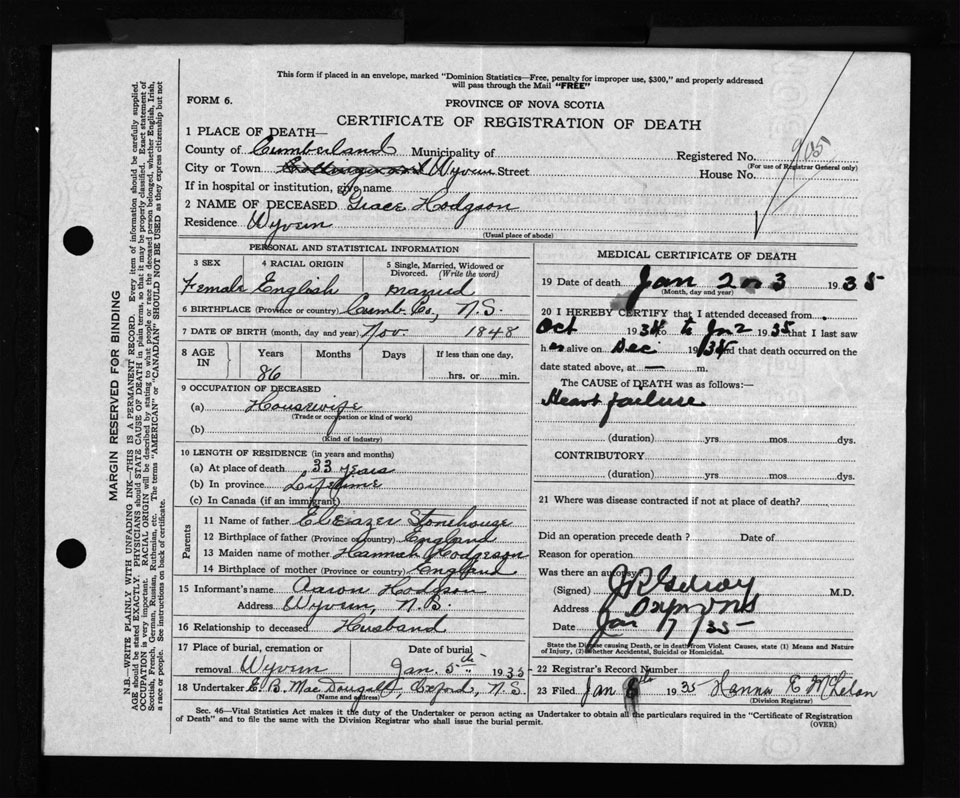 This form if placed in an envelope, marked "Dominion Statistics—Free, penalty for improper use, $300," and properly addressed
will pass through the Mail "FREE"
FORM 6.
PROVINCE OF NOVA SCOTIA
CERTIFICATE OF REGISTRATION OF DEATH
1 PLACE OF DEATH—
County of Cumberland Municipality of Registered No.
(For use of Registrar General only)
City or Town Wyvern Street House No.
If in hospital or institution, give name
2 NAME OF DECEASED Grace Hodgson
Residence Wyvern
(Usual place of abode)
PERSONAL AND STATISTICAL INFORMATION
3 SEX 4 RACIAL ORIGIN 5 Single, Married, Widowed or Divorced. (Write the word)
Female English Married
6 BIRTHPLACE (Province or country) Cumb. Co., N.S.
7 DATE OF BIRTH (month, day and year) Nov. 1848
8 AGE IN Years Months Days If less than one day,
86 hrs. or min.
9 OCCUPATION OF DECEASED
(a) Housewife
(Trade or occupation or kind of work)
(b)
(Kind of industry)
10 LENGTH OF RESIDENCE (in years and months)
(a) At place of death 33 years
(b) In province Lifetime
(c) In Canada (if an immigrant)
Parents
11 Name of father Eleazer Stonehouse
12 Birthplace of father (Province or country) England
13 Maiden name of mother Hannah Hodgson
14 Birthplace of mother (Province or country) England
15 Informant's name Aaron Hodgson
Address Wyvern, N.S.
16 Relationship to deceased Husband
17 Place of burial, cremation or removal Wyvern Date of burial Jan. 5th 1935
18 Undertaker E. B. MacDougall, Oxford, N.S.
(Name and address)
MEDICAL CERTIFICATE OF DEATH
19 Date of death Jan 2 or 3 1935
(Month, day and year)
20 I HEREBY CERTIFY that I attended deceased from
Oct 1934 to Jan 2 1935 that I last saw
her alive on Dec 1934 and that death occurred on the
date stated above, at — m.
The CAUSE of DEATH was as follows:—
Heart failure
(duration) yrs mos dys.
CONTRIBUTORY
(duration) yrs mos dys.
21 Where was disease contracted if not at place of death?
Did an operation precede death? Date of
Reason for operation
Was there an autopsy
(Signed) M.D.
Address
Date Jan 7/35
State the Disease causing Death, or in deaths from Violent Causes, state (1) Means and Nature
of Injury, (2) whether Accidental, Suicidal or Homicidal.
22 Registrar's Record Number
23 Filed Jan 8th 1935 Hanna E McLelan
(Division Registrar)
Sec. 46—Vital Statistics Act makes it the duty of the Undertaker or person acting as Undertaker to obtain all the particulars required in the "Certificate of Registration
of Death" and to file the same with the Division Registrar who shall issue the burial permit.
(OVER)
MARGIN RESERVED FOR BINDING
N.B.—WRITE PLAINLY WITH UNFADING INK—THIS IS A PERMANENT RECORD. Every item of information should be carefully supplied.
AGE should be stated EXACTLY. PHYSICIANS should STATE CAUSE OF DEATH in plain terms, so that it may be properly classified. Exact statement of
OCCUPATION is very important. RACIAL ORIGIN will be described by stating to what people or race the deceased person belonged, whether English, Irish,
Scottish, French, German, Russian, Ruthenian, etc. The terms "AMERICAN" or "CANADIAN" SHOULD NOT BE USED as they express citizenship but not
a race or people. See instructions on back of certificate.